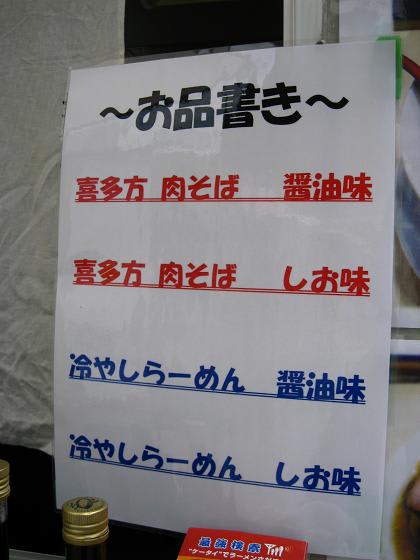 ～お品書き～
喜多方 肉そば 醤油味
喜多方 肉そば しお味
冷やしらーめん 醤油味
冷やしらーめん しお味
最強検索
"ケータイ"でラーメン